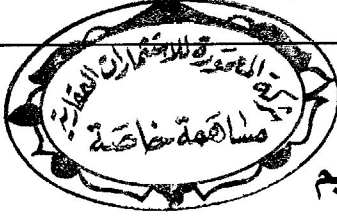 شركة للاستثمارات العقارية
مساهمة خاصة